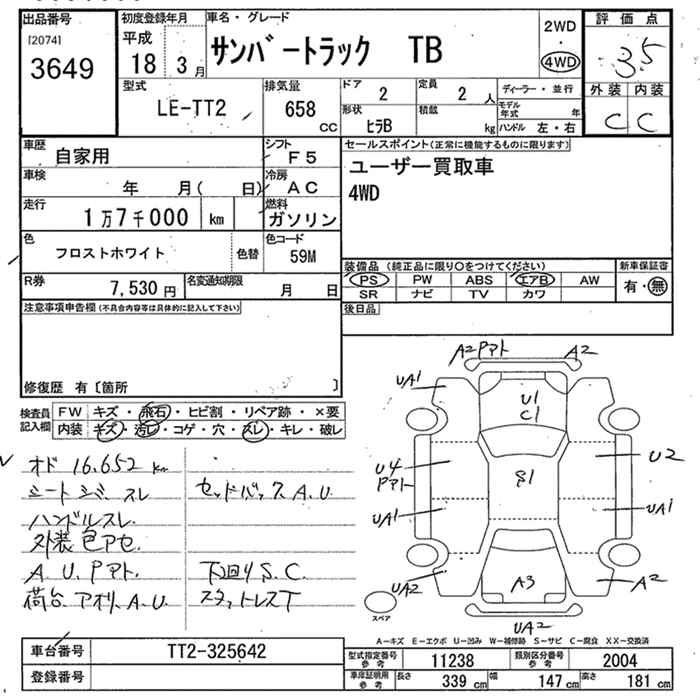 出品番号
[2074]
3649
初度登録年月
平成
18 3月
車名・グレード
サンバートラック TB
2WD
・
4WD
評価点
3.5
外装 内装
C C
型式
LE-TT2
排気量
658
CC
ドア
2
定員
2 人
形状
ヒラB
積載
kg
ディーラー・並行
モデル年式 年
ハンドル 左・右
車歴
自家用
シフト
F5
車検
年 月( 日)
冷房
AC
走行
1万7千000 km
燃料
ガソリン
色
フロストホワイト
色替
色コード
59M
R券
7,530 円
名変通知期限
月 日
セールスポイント(正常に機能するものに限ります)
ユーザー買取車
4WD
装備品 (純正品に限り〇をつけてください)
PS PW ABS エアB AW
SR ナビ TV カワ
新車保証書
有・無
後日品
注意事項申告欄(不具合内容等は具体的に記入して下さい)
修復歴 有〔箇所 〕
検査員記入欄
FW キズ・飛石・ヒビ割・リペア跡・×要
内装 キズ・汚レ・コゲ・穴・スレ・キレ・破レ
オド 16.652 km
シート シミ スレ
ハンドルスレ.
外装 色アセ.
A U. Pアト.
荷台 アオリ. A.U.
セッドバック A.U.
下回り S.C.
スタットレスT
A2Pアト
A2
UA1
U1
C1
U4
Pアト
S1
U2
UA1
UA1
UA2
A3
A2
UA2
スペア
A−キズ E−エクボ U−凹み W−補修跡 S−サビ C−腐食 XX−交換済
車台番号
TT2-325642
登録番号
型式指定番号参考
11238
類別区分番号参考
2004
車庫証明用参考
長さ 339 cm
幅 147 cm
高さ 181 cm